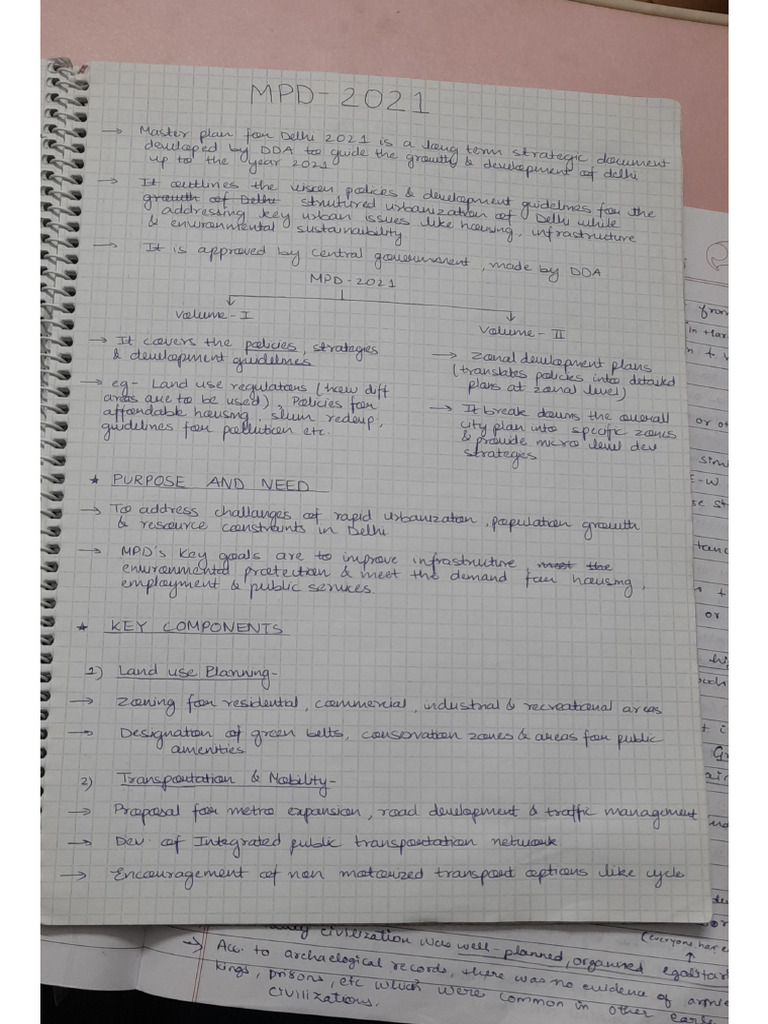 MPD-2021
→ Master plan for Delhi 2021 is a long term strategic document
developed by DDA to guide the growth & development of delhi
up to the year 2021
→ It outlines the vision polices & development guidelines for the
growth of Delhi strutured urbanization of Delhi while
addressing key urban issues like housing, infrastructure
& environmental sustainability
→ It is approved by central government, made by DDA
MPD-2021
Volume-I
→ It covers the policies, strategies
& development guidelines
→ eg- Land use regulations (how diff
areas are to be used), Policies for
affordable housing, slum redevp,
guidelines for pollution etc.
Volume-II
→ zonal development plans
(translates policies into detailed
plans at zonal level)
→ It break downs the overall
city plan into specific zones
& provide micro level dev
strategies
* PURPOSE AND NEED
→ To address challanges of rapid urbanization, population growth
& resource constraints in Delhi
→ MPD's key goals are to improve infrastruture, meet the
environmental protection & meet the demand for housing,
employment & public services.
* KEY COMPONENTS
1) Land use Planning-
→ Zoning for residential, commercial, industrial & recreational areas
→ Designation of green belts, conservation zones & areas for public
amenities
2) Transportation & Mobility-
→ Proposal for metro expansion, road development & traffic management
→ Dev. of Integrated public transportation network
→ Encouragement of non motorized transport options like cycle
civilization was well-planned, organised
(everyone has
→ Acc. to archaelogical records, there was no evidence of
kings, prisons, etc which were common in other
civilizations.